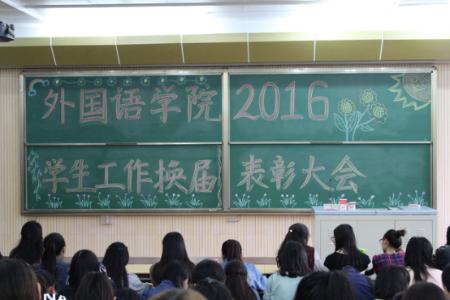 外国语学院2016
学生工作换届表彰大会